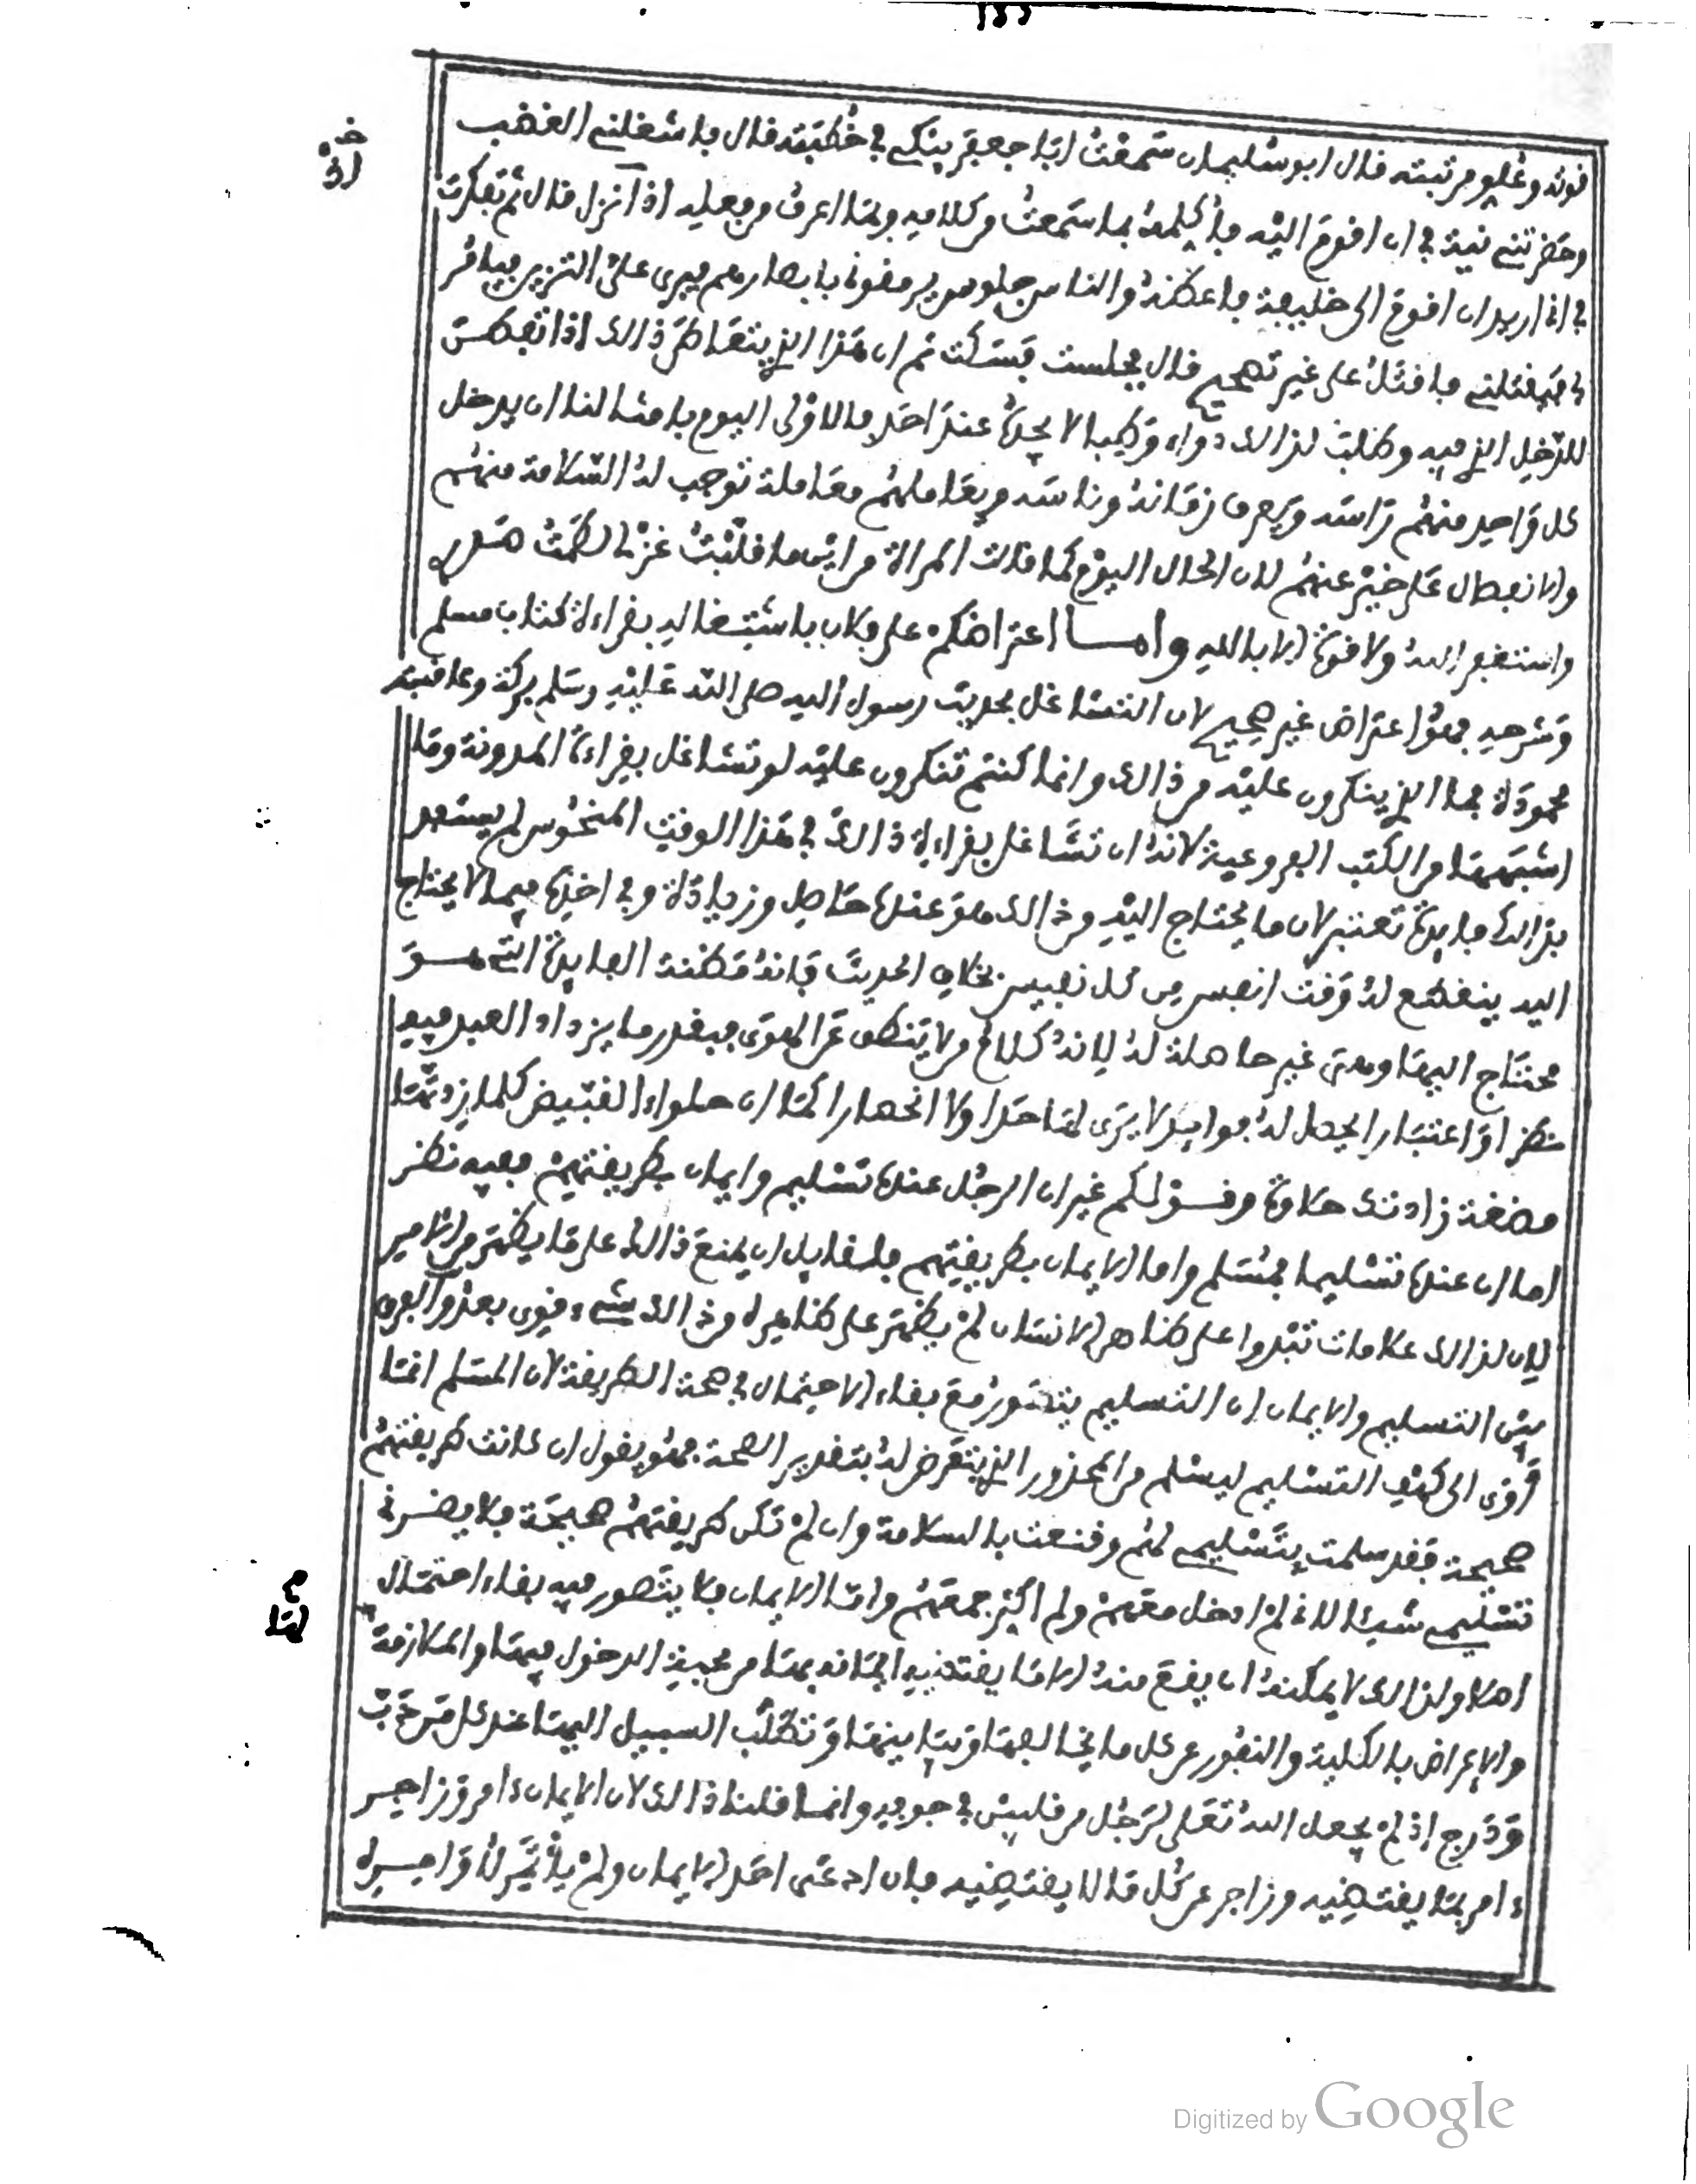 ١٤٤
قوته وعلو مرتبته قال ابو سليمان سمعت ابا جعفر يبكي في خطبته قال فاشغلني الغضب
وحضرتني نية في ان اقوم اليه فاكلمه بما سمعت من كلامه وبما اعرف من فعله اذا نزل قال ثم تفكرت
في اني اريد ان اقوم الى خليفة فاعظه والناس جلوس يرمقوني بابصارهم فيرى على التزين فيامر
بي فيقتلني فاقتل على غير تصحيح قال فجلست فسكت ثم ان هذا الذي يتعاطى ذالك اذا تفطن
للدخل الذي فيه وطلب لذالك دواء وطبيبا لا يجده عند احد فالاولى اليوم بامثالنا ان يدخل
كل واحد منهم راسه ويعرف زمانه وناسه ويعاملهم معاملة توجب له السلامة منهم
والانفصال على خير عنهم لان الحال اليوم كما قالت المراة من ايش ما قلبت عزن لطمت صدر
واستغفر الله ولا قوة الا بالله وامــا اعتراضكم على فلان باشتغاله بقراءة كتاب مسلم
وشرحه فهو اعتراض غير صحيح لان التشاغل بحديث رسول اليه صلى الله عليه وسلم بركة وعاقبته
محمودة فما الذي ينكرون عليه من ذالك وانما كنتم تنكرون عليه لو تشاغل بقراءة المدونة وما
اشبهها من الكتب الفروعية لانه ان تشاغل بقراءة ذالك في هذا الوقت المنحوس لم يستفد
بذالك فايدة تعتبر لان ما يحتاج اليه من ذالك هو عنده حاصل وزيادة وفي اخذه فيما لا يحتاج
اليه ينقطع له وقت انفس من كل نفيس بخلاف الحديث فانه مظنة الفايدة التي هــو
محتاج اليها وهي غير حاصلة له لانه كلام من لا ينطق عن الهوى فبقدر ما يزداد العبد فيه
نظرا او اعتبارا يحصل له فوايد لا يرى لها حدا ولا انحصارا كما ان حلواء القبيض كلما زدتها
مضغة زادتك حلاوة وقــولكم غير ان الرجل عنده تسليم وايمان بطريقتهم ففيه نظر
اما ان عنده تسليما فمسلم واما الايمان بطريقتهم فلقايل ان يمنع ذالك على ما يظهر من الامير
لان لذالك علامات تبدوا على ظاهر الانسان لم يظهر على ظاهره من ذالك شيء فيوى بعد والفرق
بين التسليم والايمان ان التسليم يتصور مع بقاء الاحتمال في صحة الطريقة لان المسلم انما
اوى الى كهف التسليم ليسلم من المحذور الذي يتعرض له بتقدير الصحة فهو يقول ان كانت طريقتهم
صحيحة فقد سلمت بتسليمي لهم وقنعت بالسلامة وان لم تكن طريقتهم صحيحة فلا يضرني
تسليمي شيئا لاني لم ادخل معهم ولم اكثر جمعهم واما الايمان فلا يتصور فيه بقاء احتمال
اصلا ولذالك لا يمكنه ان يقع منه الا ما يقتضيه ايمانه بها من محبة الدخول فيها والملازمة
والاعراض بالكلية والنفور عن كل ما يخالفها ويباينها وتطلب السبيل اليها عند كل من هب
ودرج اذ لم يجعل الله تعلى لرجل من قلبين في جوفه وانما قلنا ذالك لان الايمان ءامر وزاجر
ءامر بما يقتضيه وزاجر عن كل ما لا يقتضيه فان ادعى احد الايمان ولم يأتمر لاوامره
لها
Digitized by Google